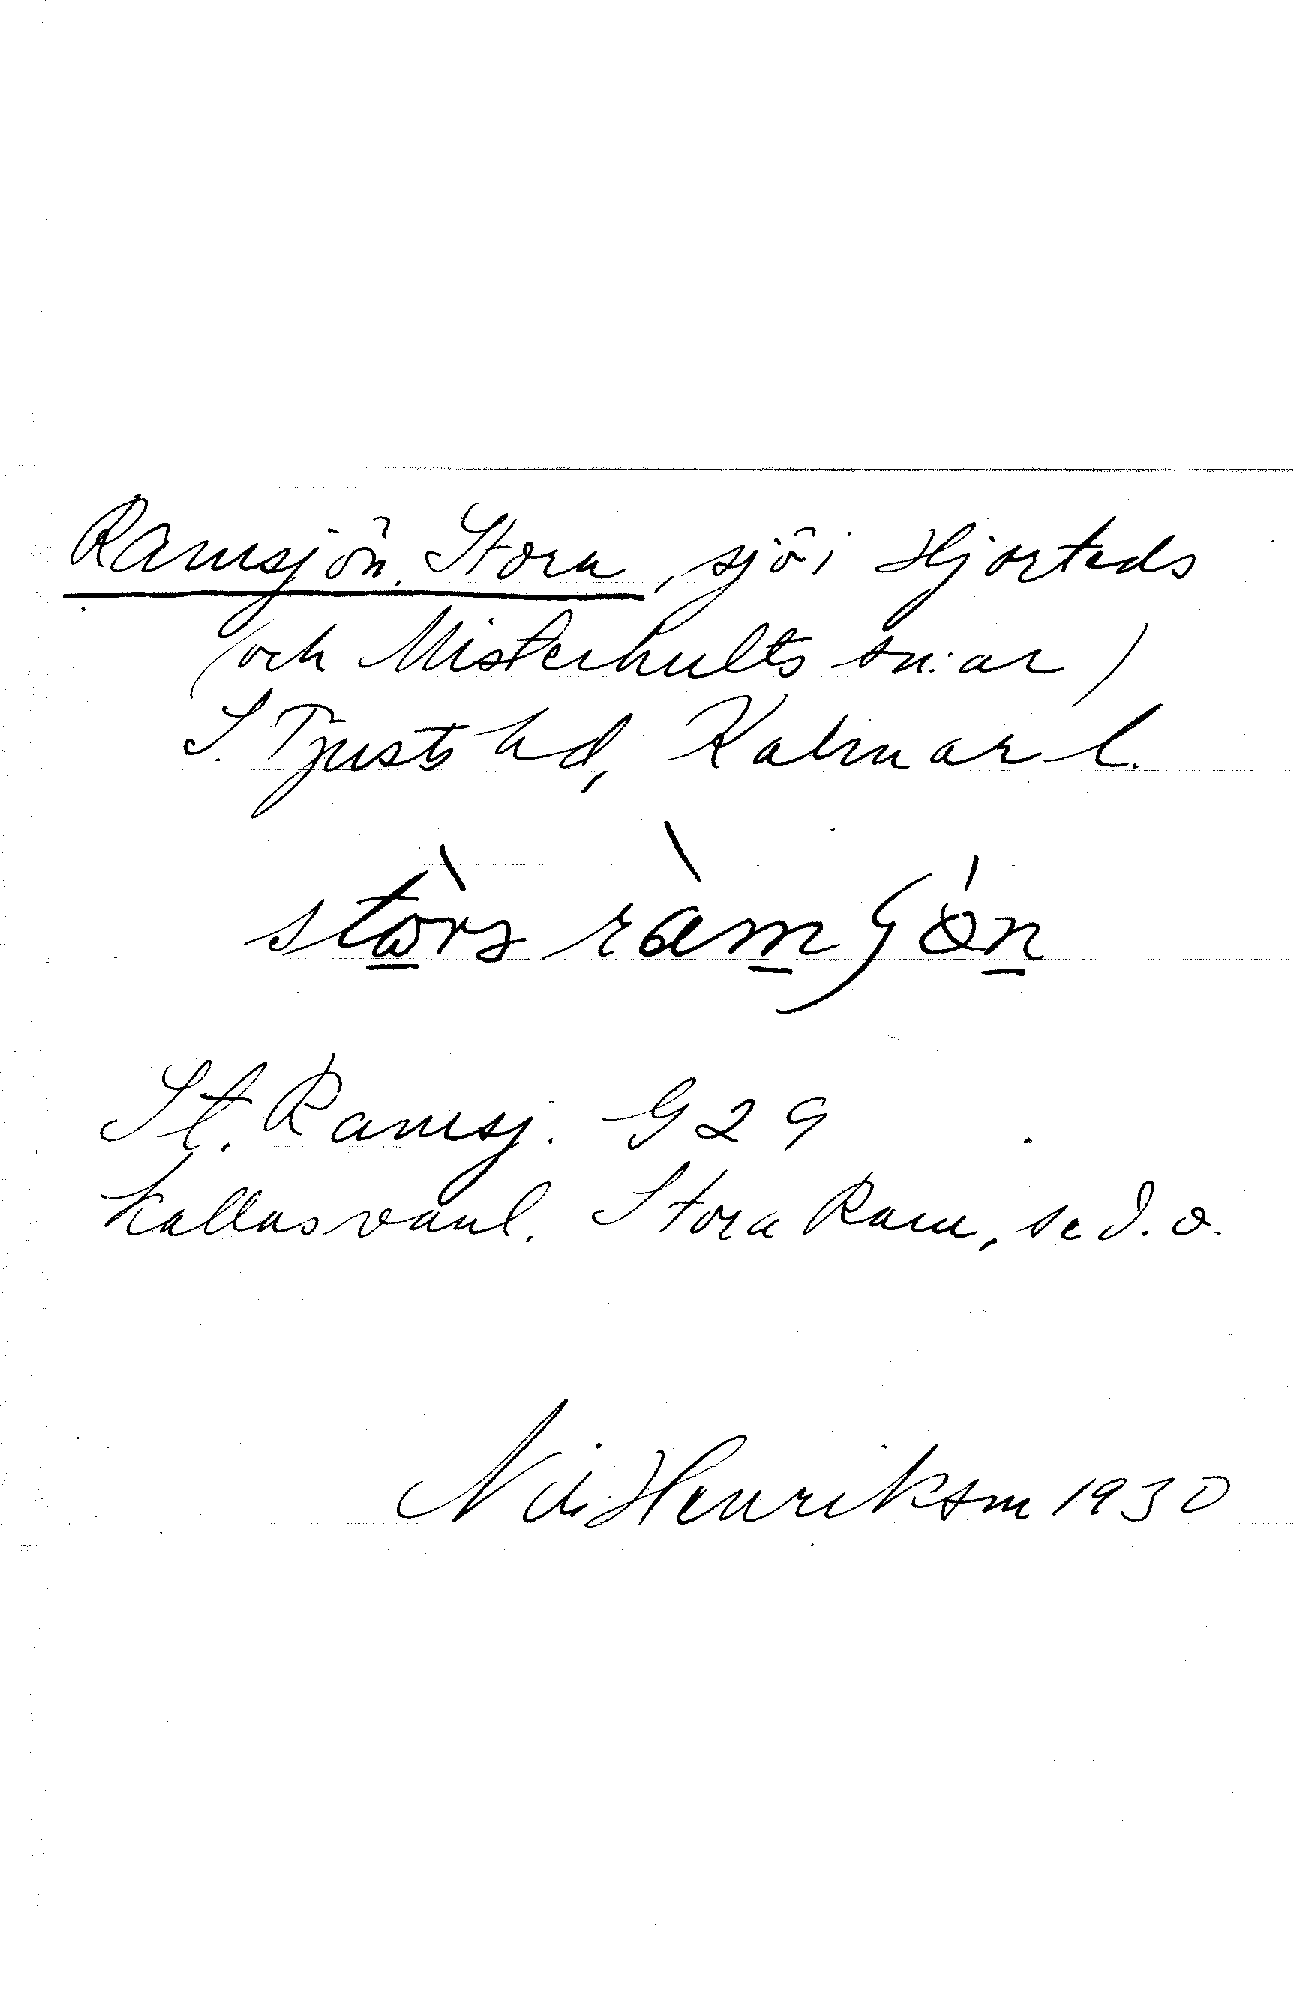 Ramsjön, Stora, sjö i Hjorteds
(och Misterhults sn:ar)
S. Tjusts hd, Kalmar l.
St. Ramsj. G 29
Kallas vanl. Stora Ram, se d. o.
Nils Henrikson 1930